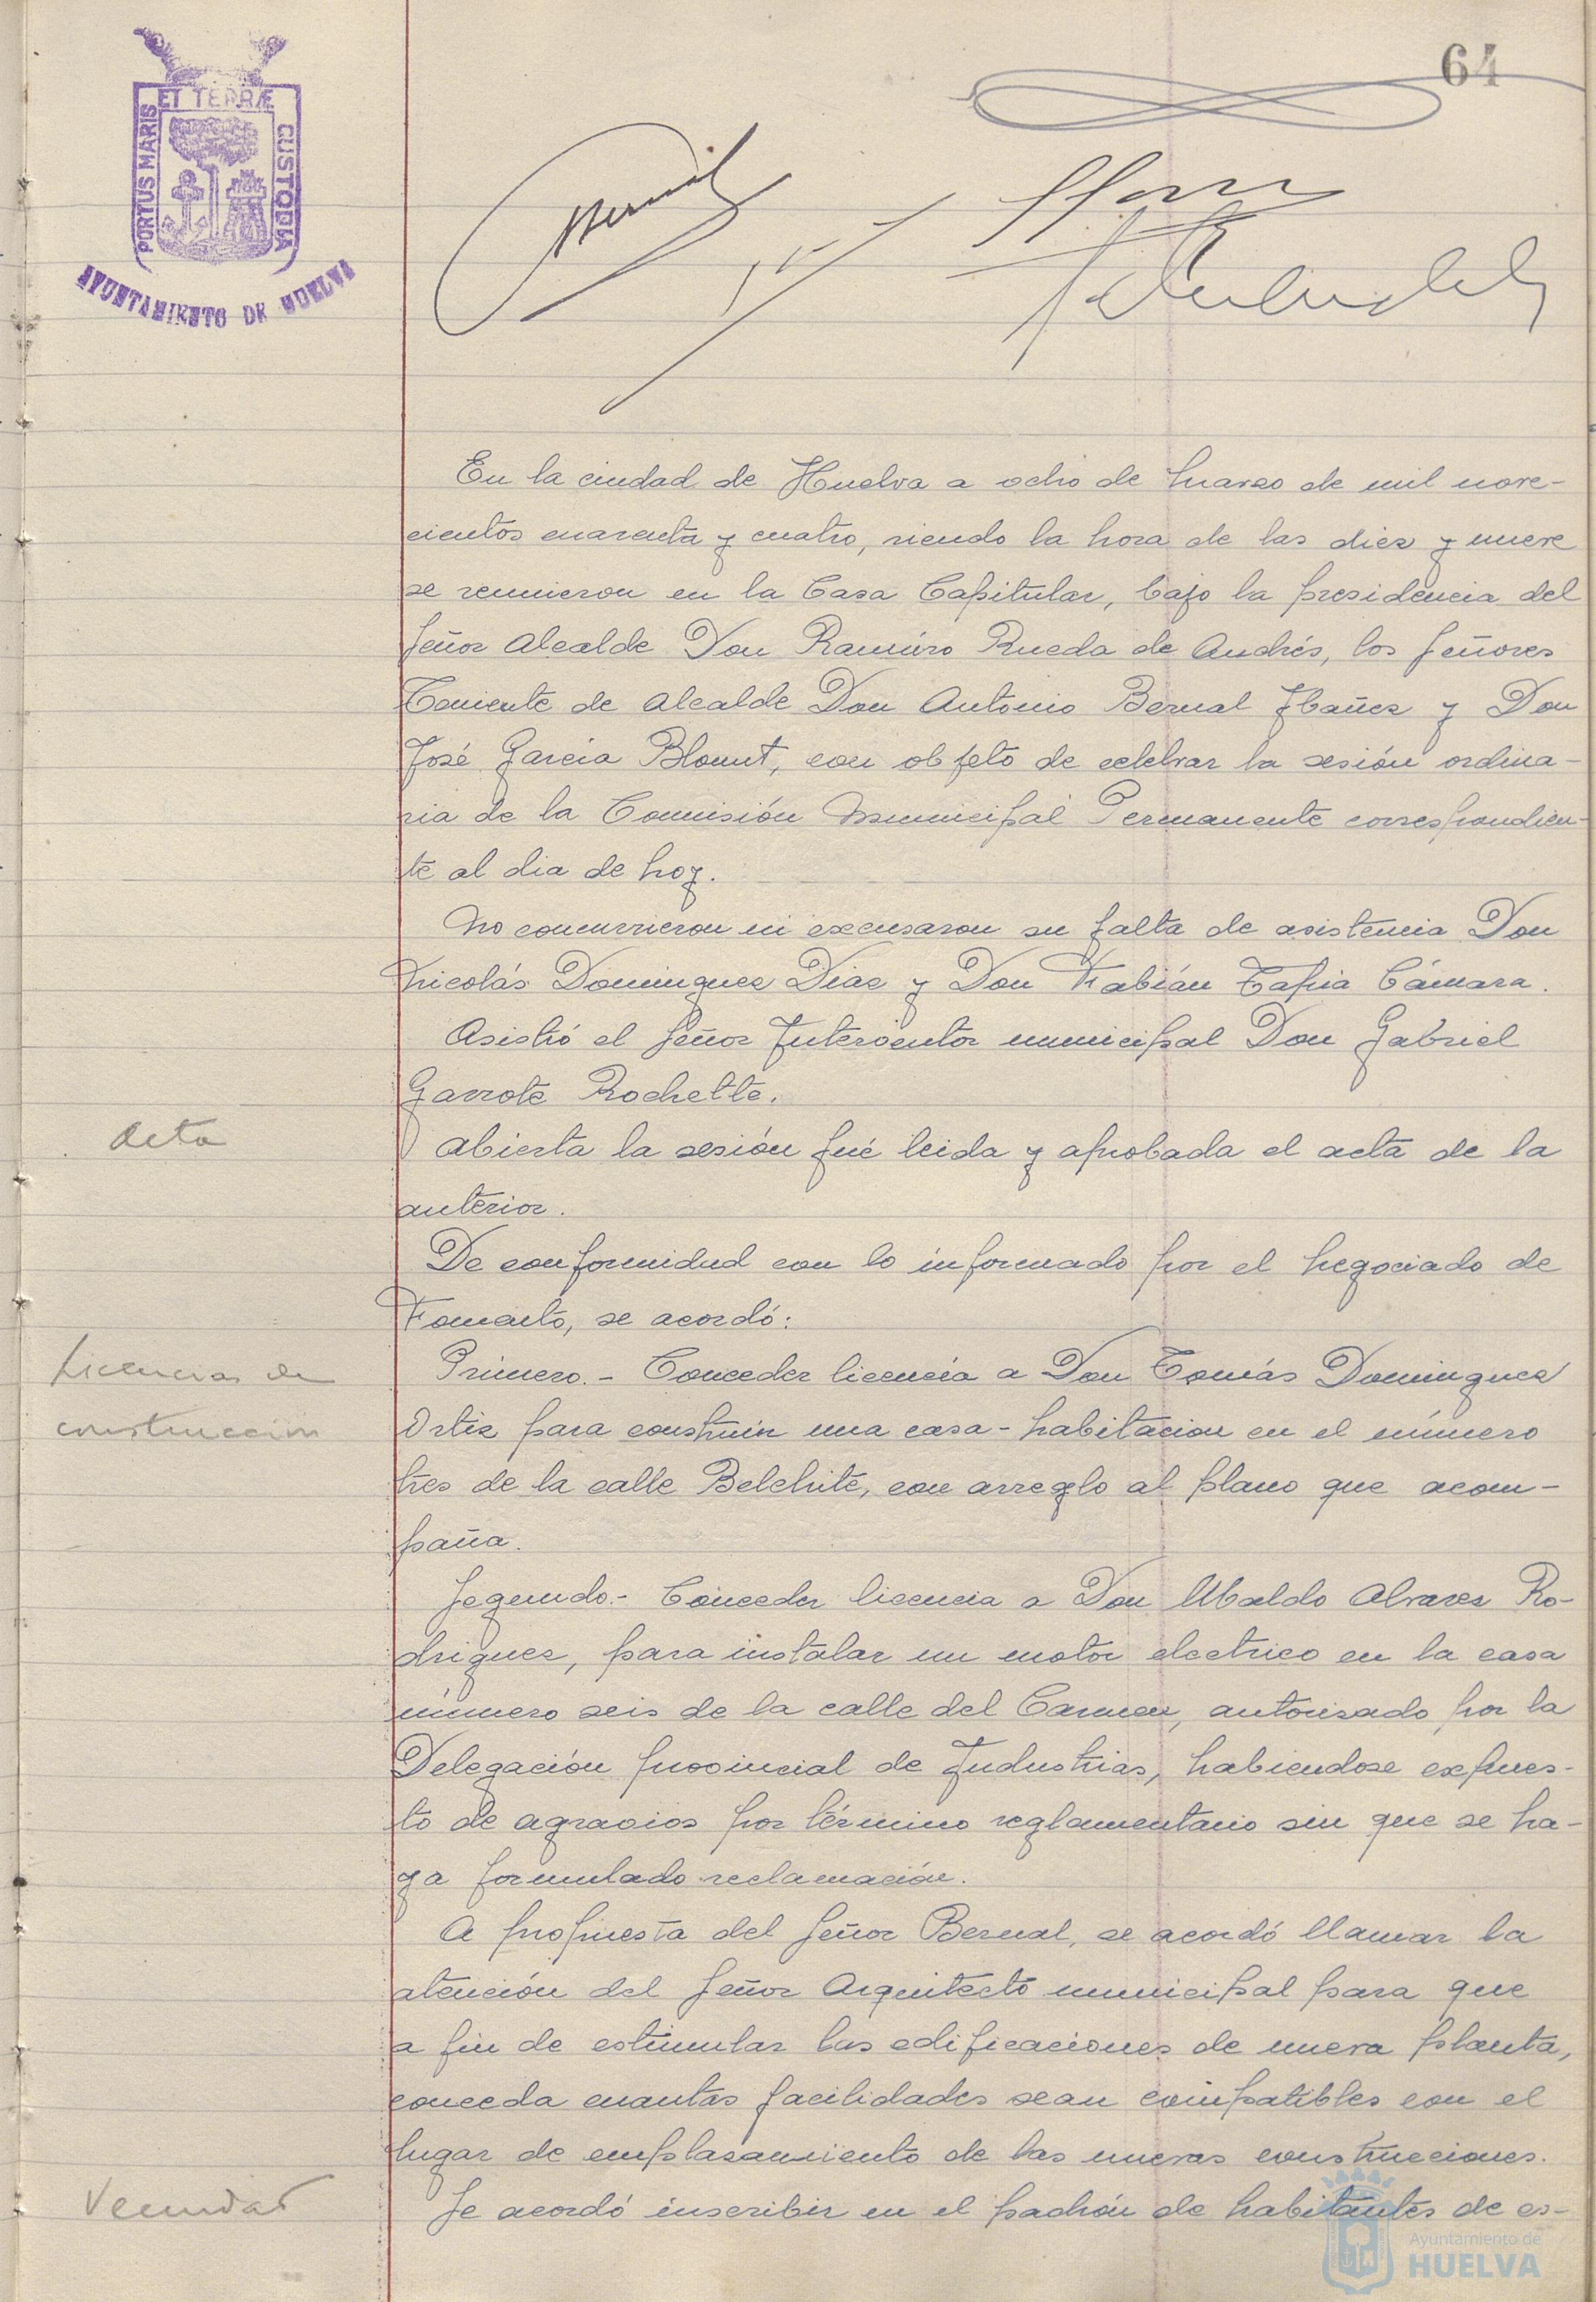 64
PORTUS MARIS ET TERRÆ CUSTODIA
AYUNTAMIENTO DE HUELVA
En la ciudad de Huelva a ocho de marzo de mil nove-
cientos cuarenta y cuatro, siendo la hora de las diez y nueve
se reunieron en la Casa Capitular, bajo la presidencia del
Señor Alcalde Don Ramiro Rueda de Andrés, los Señores
Teniente de Alcalde Don Antonio Bernal Ibañez y Don
José Garcia Blount, con objeto de celebrar la sesión ordina-
ria de la Comisión Municipal Permanente correspondien-
te al dia de hoy.
No concurrieron ni excusaron su falta de asistencia Don
Nicolás Dominguez Diaz y Don Fabián Tapia Cámara.
Asistió el Señor Interventor municipal Don Gabriel
Garrote Rochette.
Acta
Abierta la sesión fué leida y aprobada el acta de la
anterior.
De conformidad con lo informado por el Negociado de
Fomento, se acordó:
Licencias de
construccion
Primero.- Conceder licencia a Don Tomás Dominguez
Ortiz para construir una casa-habitacion en el número
tres de la calle Belchite, con arreglo al plano que acom-
paña.
Segundo.- Conceder licencia a Don Ubaldo Alvarez Ro-
driguez, para instalar un motor electrico en la casa
número seis de la calle del Carmen, autorizado por la
Delegación provincial de Industrias, habiendose expues-
to de agravios por término reglamentario sin que se ha-
ya formulado reclamación.
A propuesta del Señor Bernal, se acordó llamar la
atención del Señor Arquitecto municipal para que
a fin de estimular las edificaciones de nueva planta,
conceda cuantas facilidades sean compatibles con el
lugar de emplazamiento de las nuevas construcciones.
Vecindad
Se acordó inscribir en el padrón de habitantes de es-
Ayuntamiento de
HUELVA